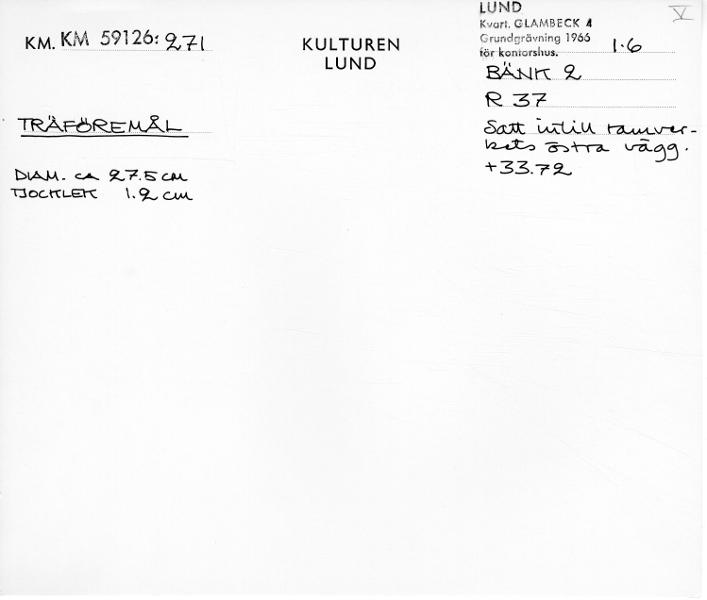 KM. KM 59126:271
TRÄFÖREMÅL
DIAM. ca 27.5 cm
TJOCKLEK 1.2 cm
KULTUREN
LUND
LUND
Kvart. GLAMBECK 4
Grundgrävning 1966
för kontorshus. 1.6
V
BÄNK 2
R 37
Satt intill ramver-
kets östra vägg.
+33.72